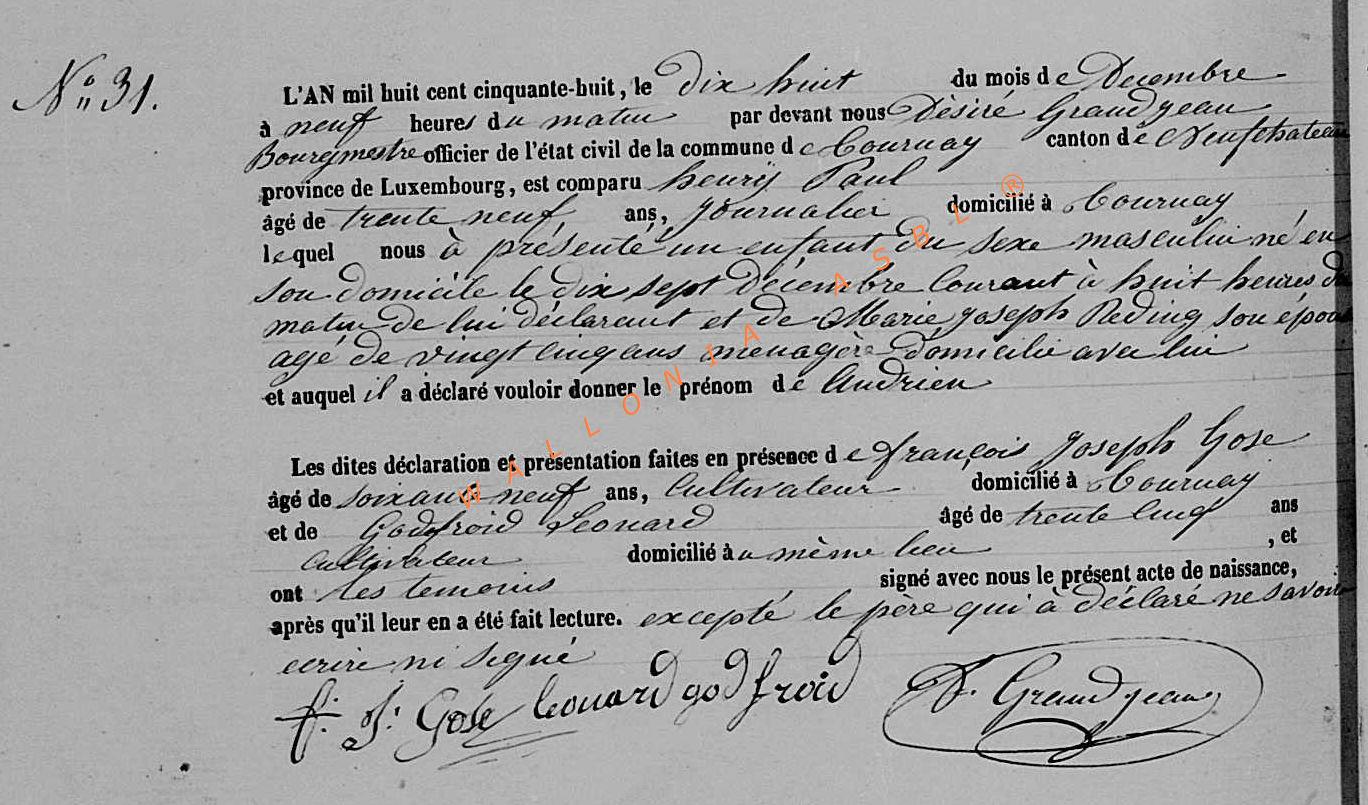 N° 31.
L'AN mil huit cent cinquante-huit, le dix huit du mois de Decembre
à neuf heures du matin par devant nous Dèsiré Grandjean
Bourgmestre officier de l'état civil de la commune de Cournay canton de Neufchateau
province de Luxembourg, est comparu henrij Paul
âgé de trente neuf ans, Journalier domicilié à Cournay
lequel nous à présenté un enfant du sexe masculin né en
son domicile le dix sept décembre Courant à huit heures du
matin de lui déclarant et de Marie joseph Reding son épouse
agé de vingt cinq ans menagère domicilié avec lui
et auquel il a déclaré vouloir donner le prénom de Andrien
Les dites déclaration et présentation faites en présence de françois Joseph Gose
âgé de soixante neuf ans, Cultivateur domicilié à Cournay
et de Godfroid Léonard âgé de trente cinq ans
Cultivateur domicilié au même lieu , et
ont les temoins signé avec nous le présent acte de naissance,
après qu'il leur en a été fait lecture. excepté le père qui à déclaré ne savoir
ecrire ni signé
f. J. Gosé Leonard godfroid D. Grandjean
WALLONIA ASBL ®